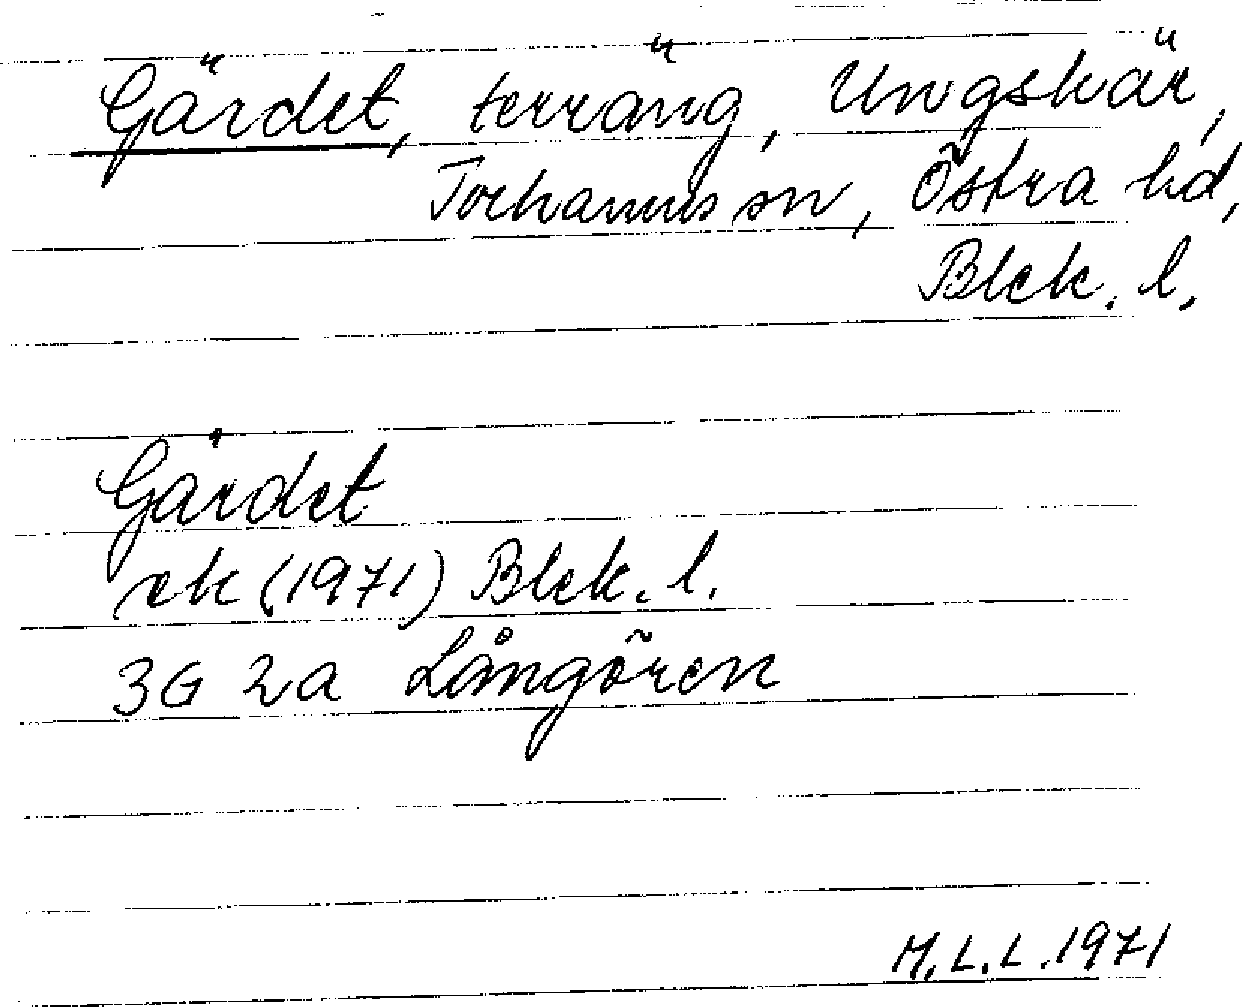 Gärdet, terräng, Ungskär,
Torhamns sn, Östra hd,
Blek. l.
Gärdet
ek (1971) Blek. l.
3G 2a Långören
M.L.L. 1971